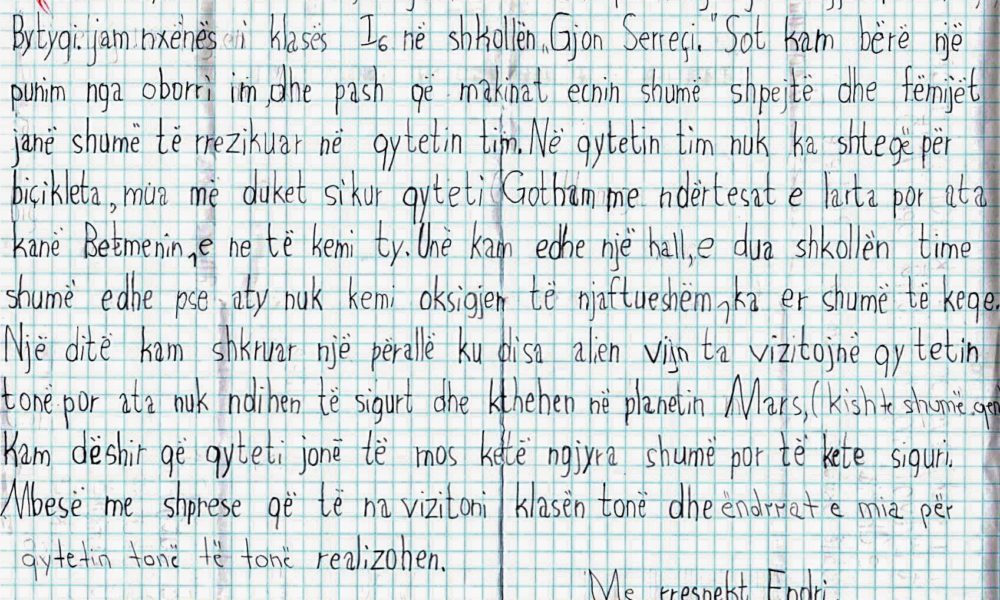 Bytyqi. jam nxënës i klasës I6 në shkollën „Gjon Serreçi." Sot kam bërë një
punim nga oborri im, dhe pash që makinat ecnin shumë shpejtë dhe fëmijët
janë shumë të rrezikuar në qytetin tim. Në qytetin tim nuk ka shtegë për
biçikleta, mua më duket sikur qyteti Gotham me ndërtesat e larta por ata
kanë Betmenin, e ne të kemi ty. Unë kam edhe një hall, e dua shkollën time
shumë edhe pse aty nuk kemi oksigjen të njaftueshëm, ka er shumë të keqe.
Një ditë kam shkruar një përallë ku disa alien vijn ta vizitojnë qytetin
tonë por ata nuk ndihen të sigurt dhe kthehen në planetin Mars, (kishte shumë
Kam dëshir që qyteti jonë të mos ketë ngjyra shumë por të kete siguri.
Mbesë me shprese që të na vizitoni klasën tonë dhe ëndrrat e mia për
qytetin tonë të tonë realizohen.
Me rrespekt Endri